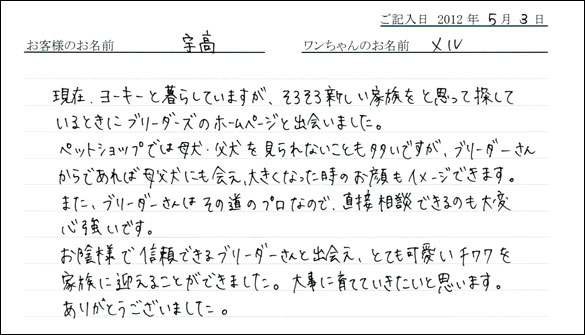 ご記入日 2012 年 5 月 3 日
お客様のお名前 宇高 ワンちゃんのお名前 メル
現在、ヨーキーと暮らしていますが、そろそろ新しい家族をと思って探して
いるときにブリーダーズのホームページと出会いました。
ペットショップでは母犬・父犬を見られないことも多いですが、ブリーダーさん
からであれば母父犬にも会え、大きくなった時のお顔もイメージできます。
また、ブリーダーさんはその道のプロなので、直接相談できるのも大変
心強いです。
お陰様で信頼できるブリーダーさんと出会え、とても可愛いチワワを
家族に迎えることができました。大事に育てていきたいと思います。
ありがとうございました。